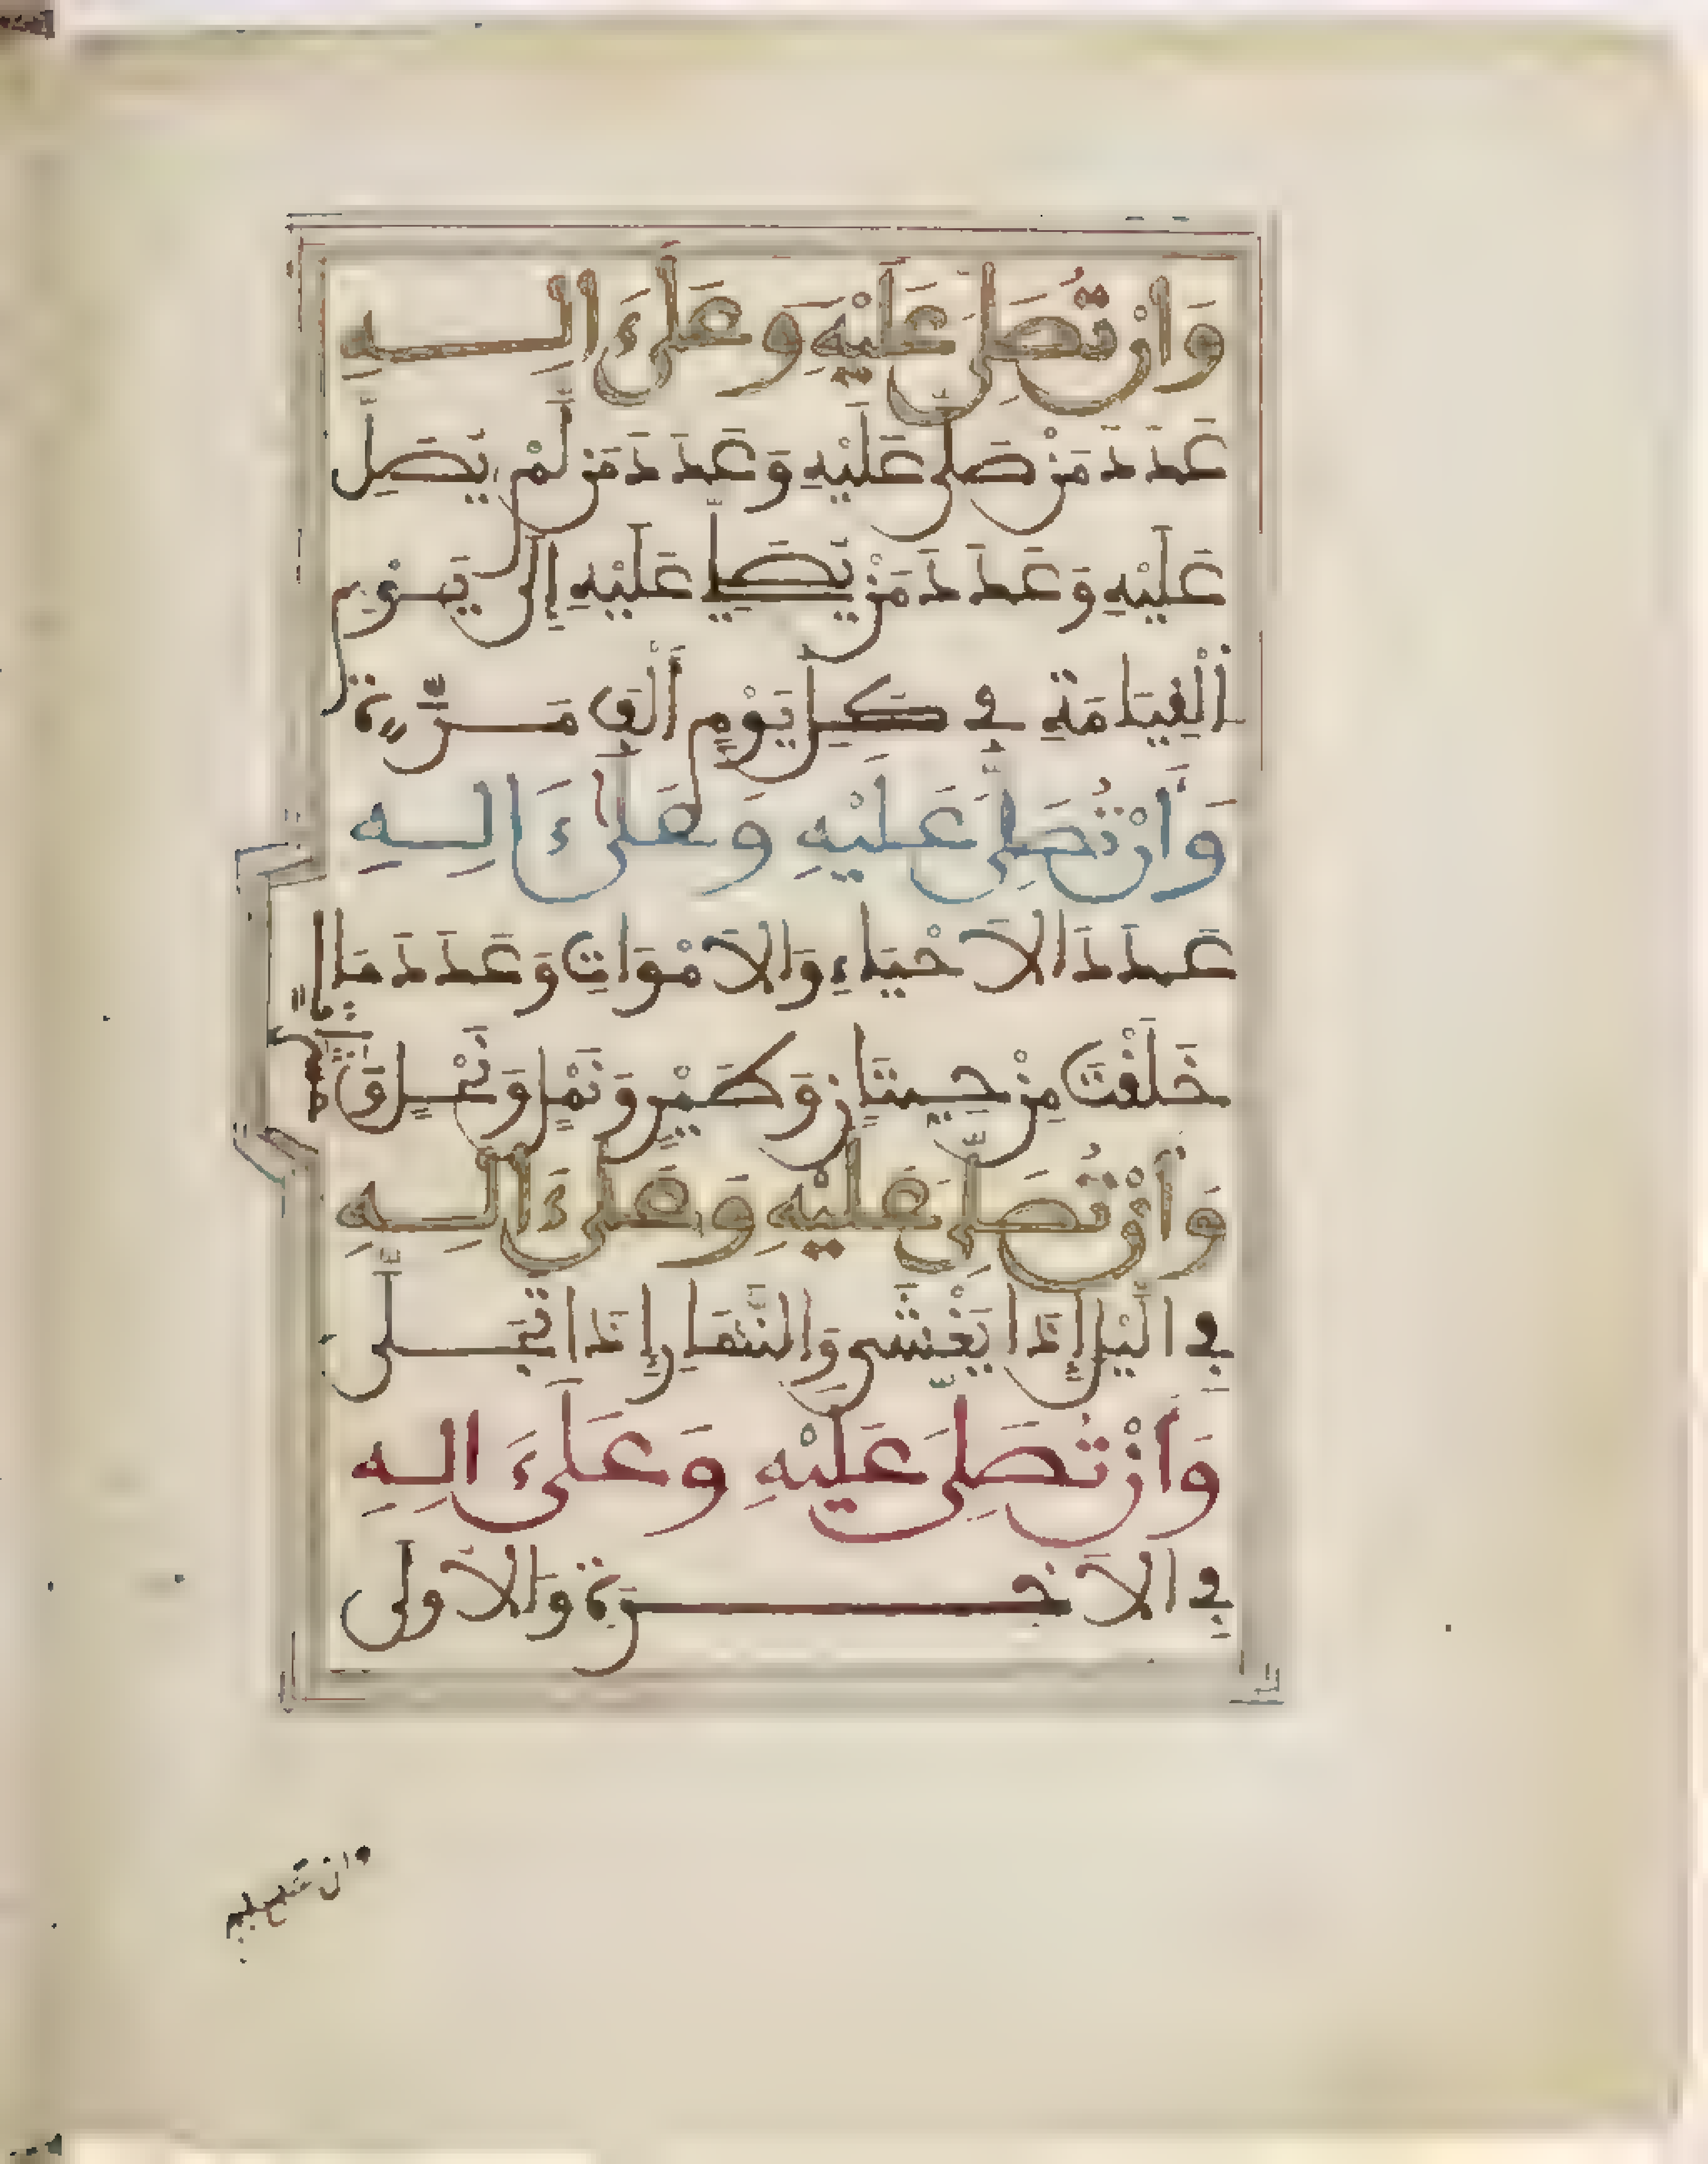 وَأَنْ تُصَلِّيَ عَلَيْهِ وَعَلَىٰ ءَالِهِ
عَدَدَ مَنْ صَلَّى عَلَيْهِ وَعَدَدَ مَن لَّمْ يُصَلِّ
عَلَيْهِ وَعَدَدَ مَنْ يُصَلِّي عَلَيْهِ إِلَى يَوْمِ
الْقِيَامَةِ فِي كُلِّ يَوْمٍ أَلْفَ مَرَّةٍ
وَأَنْ تُصَلِّيَ عَلَيْهِ وَعَلَىٰ ءَالِهِ
عَدَدَ الْأَحْيَاءِ وَالْأَمْوَاتِ وَعَدَدَ مَا
خَلَقْتَ مِنْ حِيتَانٍ وَطَيْرٍ وَنَمْلٍ وَنَحْلٍ وَ
وَأَنْ تُصَلِّيَ عَلَيْهِ وَعَلَىٰ ءَالِهِ
فِي الَّيْلِ إِذَا يَغْشَى وَالنَّهَارِ إِذَا تَجَلَّى
وَأَنْ تُصَلِّيَ عَلَيْهِ وَعَلَىٰ ءَالِهِ
فِي الْآخِرَةِ وَالْأُولَى
وان تصلي